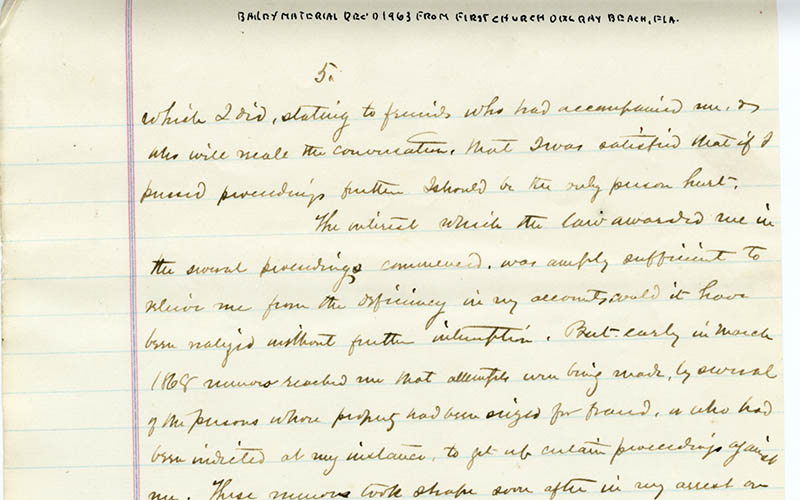 BAILEY MATERIAL REC'D 1963 FROM FIRST CHURCH DELRAY BEACH, FLA.
5.
which I did, stating to friends who had accompanied me, &
who will recall the conversation, that I was satisfied that if I
pursued proceedings further I should be the only person hurt.
The interest which the law awarded me in
the several proceedings commenced, was amply sufficient to
relieve me from the deficiency in my accounts, could it have
been realized without further interruption. But early in March
1868 rumors reached me that attempts were being made, by several
of the persons whose property had been seized for fraud, or who had
been indicted at my instance, to get up certain proceedings against
me. These rumors took shape soon after in my arrest on